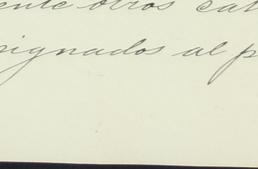 ente otros cat
signados al p